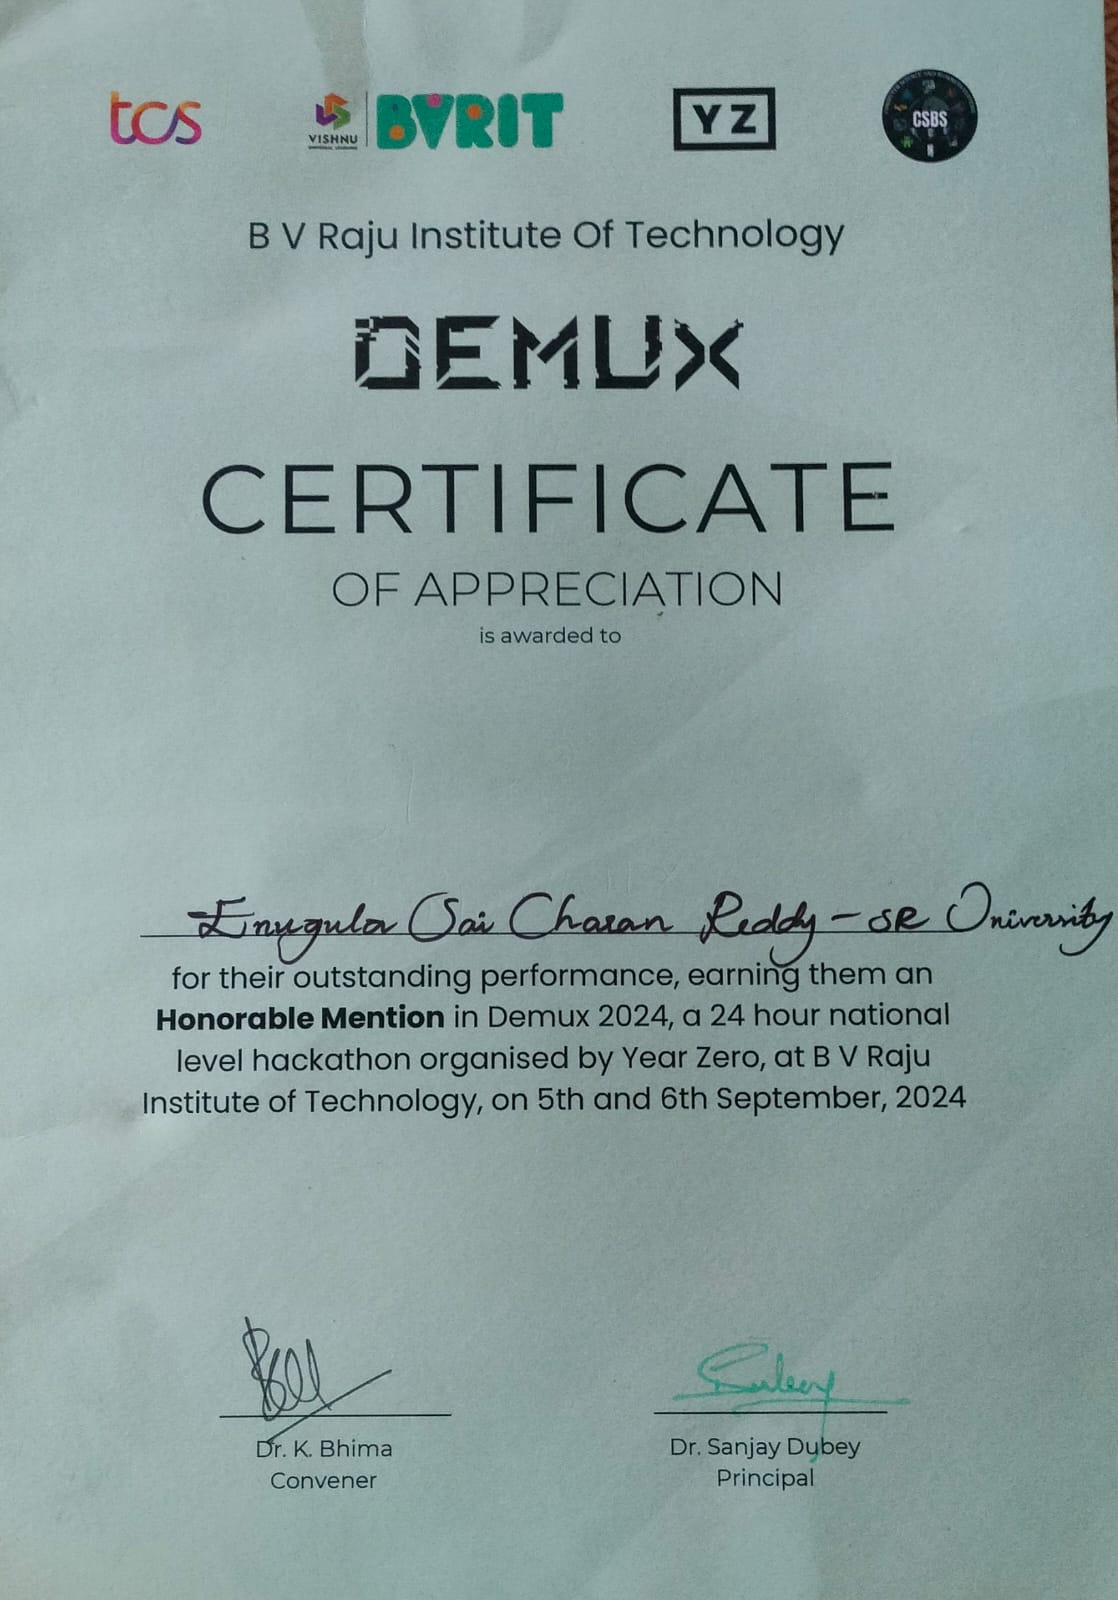 tcs
VISHNU
BVRIT
YZ
CSBS
B V Raju Institute Of Technology
DEMUX
CERTIFICATE
OF APPRECIATION
is awarded to
Enugula Sai Charan Reddy - SR University
for their outstanding performance, earning them an
Honorable Mention in Demux 2024, a 24 hour national
level hackathon organised by Year Zero, at B V Raju
Institute of Technology, on 5th and 6th September, 2024
Dr. K. Bhima
Convener
Dr. Sanjay Dubey
Principal